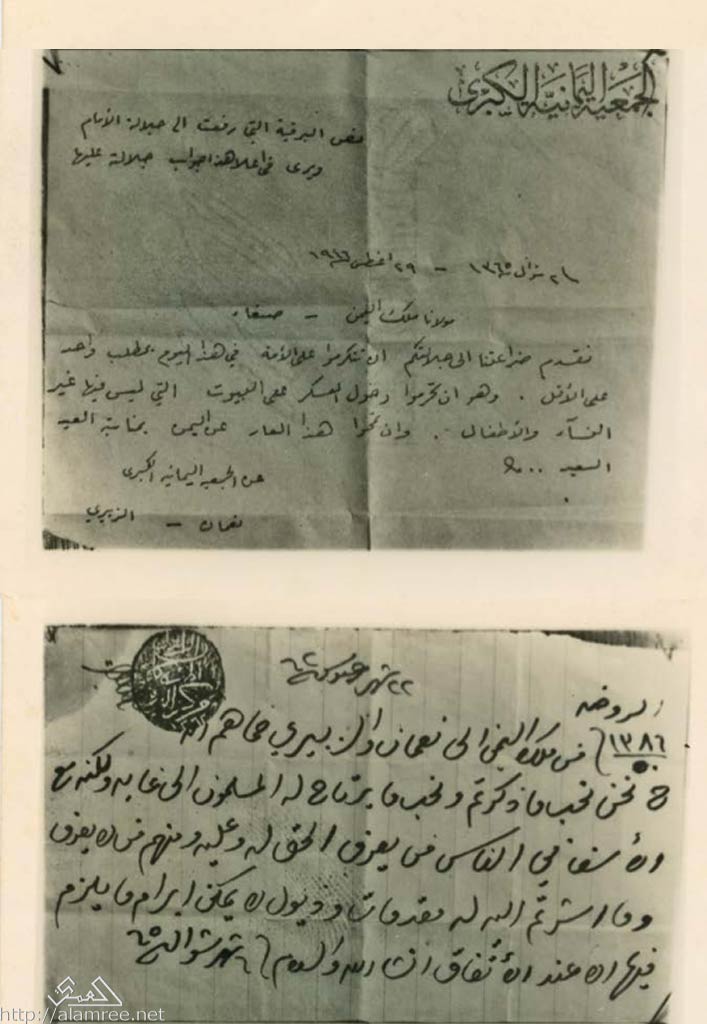 الجمعية اليمانية الكبرى
نص البرقية التي رفعت الى جلالة الامام
ويرى في اعلا هذا جواب جلالة عليها
٢ شوال ١٣٦٥ – ٢٩ اغسطس ١٩٤٦
مولانا ملك اليمن – صنعاء
نقدم ضراعتنا الى جلالتكم ان تتكرموا على الأمة في هذا اليوم بمطلب واحد
على الأقل . وهو ان تحرموا دخول العسكر على البيوت التي ليس فيها غير
النسآء والأطفال . وان تمحوا هذا العار عن اليمن بمناسبة العيد
السعيد
عن الجمعية اليمانية الكبرى
نعمان – الزبيري
٢٢ شهر
الروضه
١٣٨٦ من ملك اليمن الى نعمان والزبيري حماهم الله
نحن نحب ما ذكرتم ونحب ما يرتاح له المسلمون الى غايه ولكنه مع
الأسف في الناس من يعرف الحق له وعليه ومنهم من لا يعرف
وما اشرتم اليه له مقدمات وذيول لا يمكن ابرام ما يلزم
فيها الا عند الأتفاق انشاالله والسلام شهر شوال
العمري
http://alamree.net